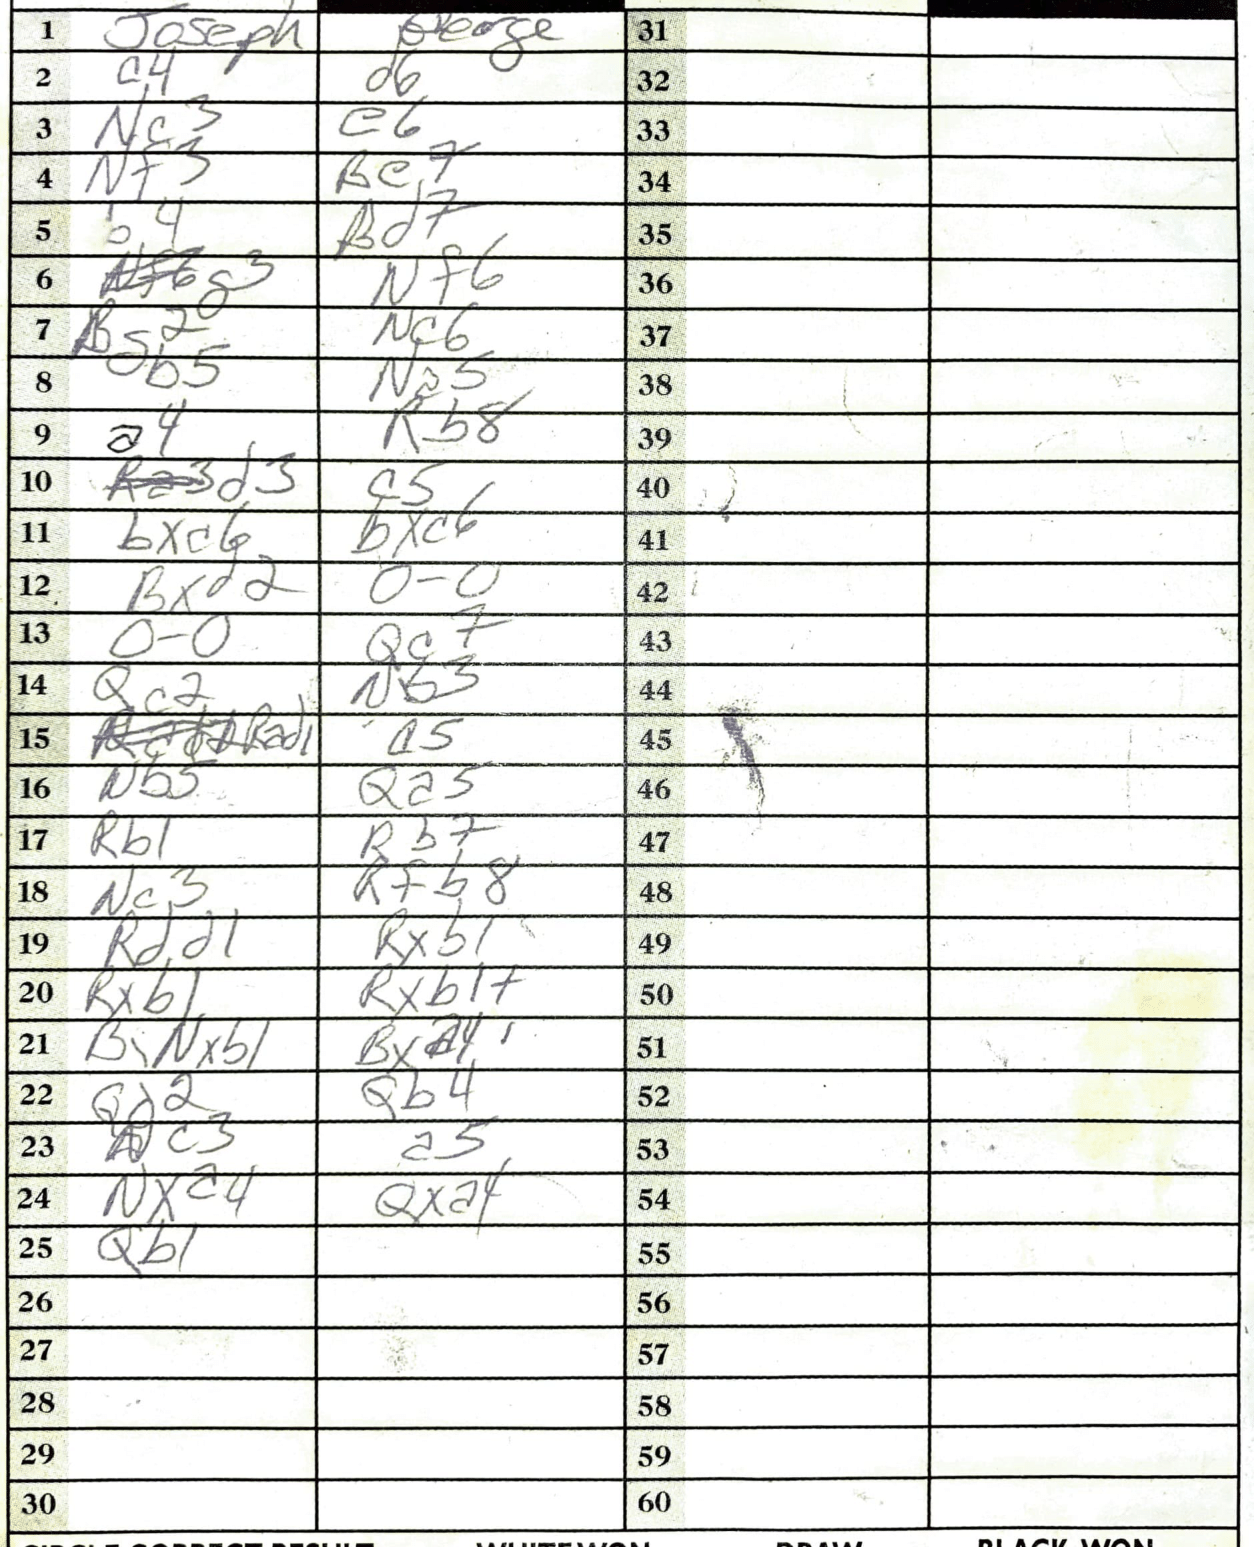 1 Joseph George 31
2 c4 d6 32
3 Nc3 e6 33
4 Nf3 Be7 34
5 b4 Bd7 35
6 g3 Nf6 36
7 Bg2 Nc6 37
8 b5 Na5 38
9 a4 Rb8 39
10 d3 c5 40
11 bxc6 bxc6 41
12 Bxd2 0-0 42
13 0-0 Qc7 43
14 Qc2 Nb3 44
15 Rad1 c5 45
16 Nb5 Qa5 46
17 Rb1 Rb7 47
18 Nc3 Rfb8 48
19 Rdd1 Rxb1 49
20 Rxb1 Rxb1+ 50
21 Nxb1 Bxa4 51
22 Qd2 Qb4 52
23 Nc3 a5 53
24 Nxa4 Qxa4 54
25 Qb1 55
26 56
27 57
28 58
29 59
30 60
CIRCLE CORRECT RESULT WHITE WON DRAW BLACK WON